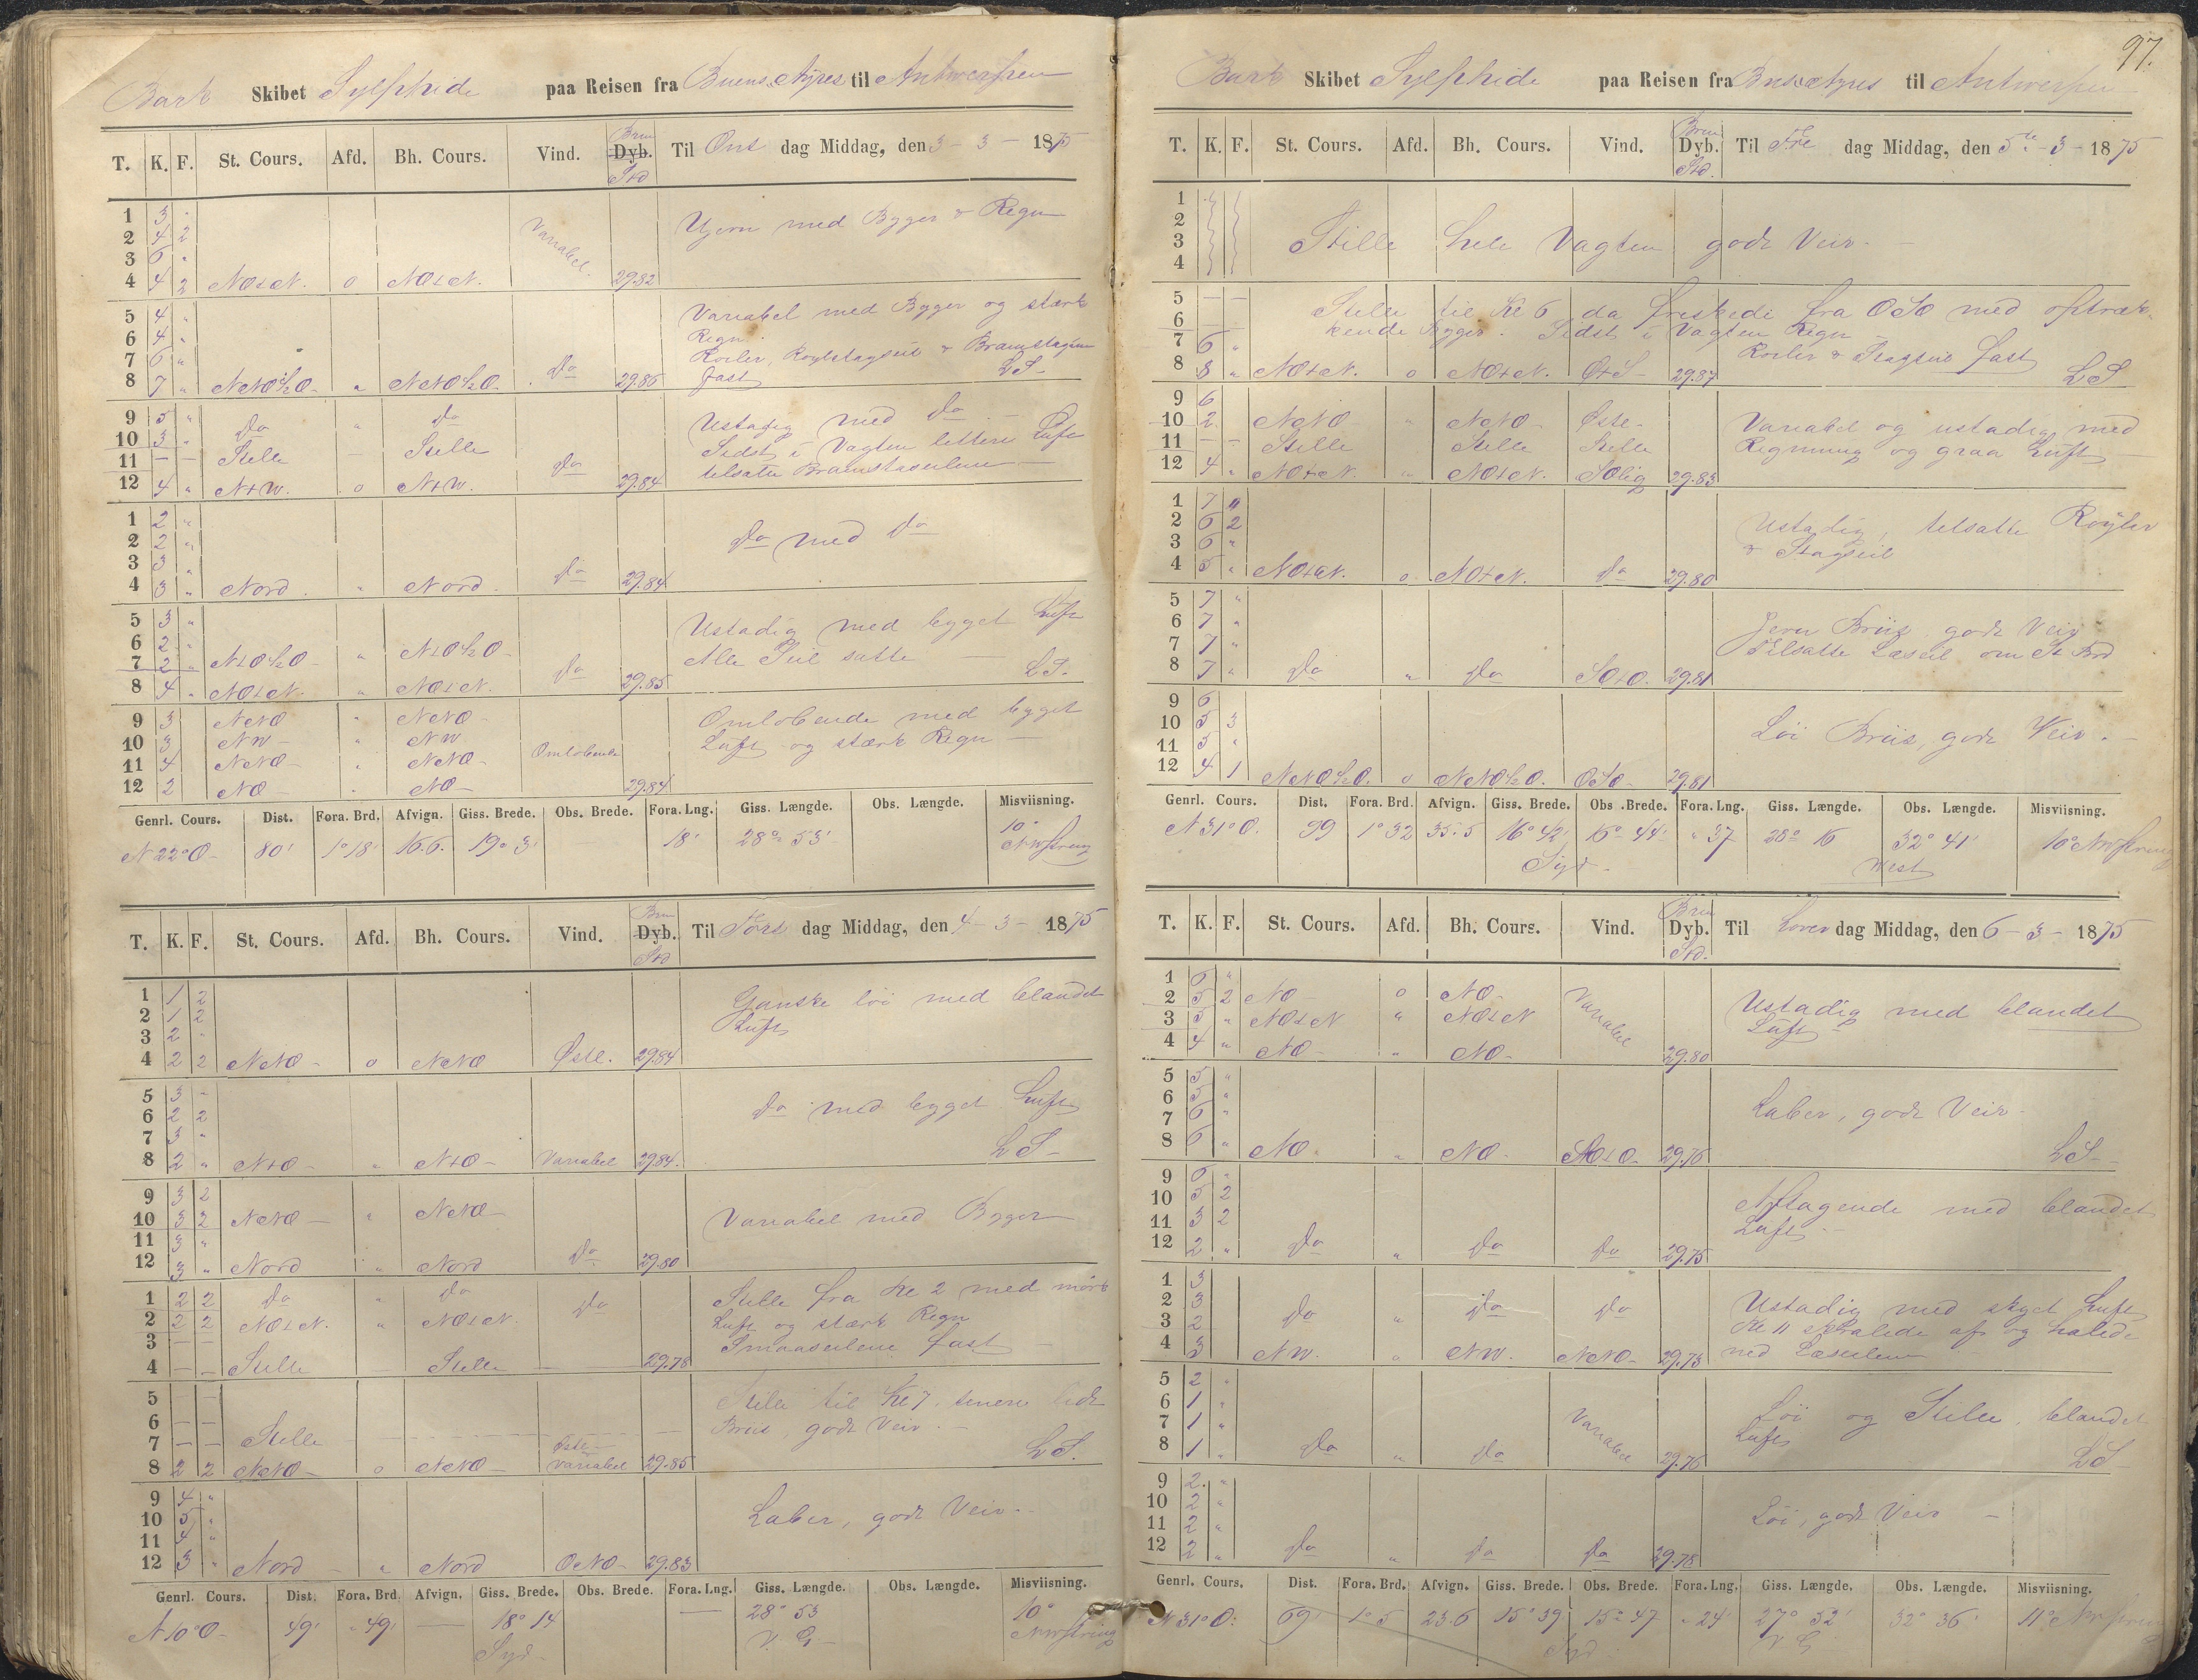 97.
Bark Skibet Sylphide paa Reisen fra Buens Ayres til Antwerpen
T. K. F. St. Cours. Afd. Bh. Cours. Vind. Dyb. Til Ons dag Middag, den 3 - 3 - 1875
Std
1 3 " Ujevn med Byger & Regn
2 4 2 Variabel.
3 6 "
4 4 2 NOtN. 0 NOtN. 29.82
5 4 " Variabel med Byger og stærk
6 4 " Regn.
7 6 " Roiler, Roylstagseil & Bramstagseil
8 7 " NNO½O. " NNO½O. Do 29.86 fast LS
9 5 " Do " Do Ustadig med Do
10 3 " Stille Stille Sidst i Vagten lettere Luft
11 – – Do tilsatte Bramstagseilene
12 4 " NtW. 0 NtW. 29.84
1 2 "
2 2 " Do med Do
3 3 "
4 3 " Nord. " Nord. Do 29.84
5 3 " Ustadig med bygget Luft
6 2 " Alle Seil satte
7 2 " NtO½O " NtO½O
8 4 " NOtN. " NOtN. Do 29.85 LS.
9 3 NNO " NNO Omløbende med bygget
10 3 NW " NW Luft og stærk Regn
11 4 NNO " NNO Omløbende
12 2 NO " NO 29.84
Genrl. Cours. Dist. Fora. Brd. Afvign. Giss. Brede. Obs. Brede. Fora. Lng. Giss. Længde. Obs. Længde. Misviisning.
N 22° O 80' 1° 18' 16.6. 19° 3' 18' 28° 53' 10°
T. K. F. St. Cours. Afd. Bh. Cours. Vind. Dyb. Til Tors dag Middag, den 4 - 3 - 1875
Std
1 1 2 Ganske løi med blandet
2 1 2 Luft
3 2 "
4 2 2 NNO 0 NNO Østl. 29.84
5 3 " Do med bygget Luft
6 2 2
7 3 "
8 2 " NtO " NtO Variabel 29.84. LS
9 3 2
10 3 2 NNO " NNO Variabel med Byger
11 3 "
12 3 " Nord " Nord Do 29.80
1 2 2 Do " Do Do Stille fra Kl 2 med mörk
2 2 2 NOtN. " NOtN. Luft og stærk Regn
3 – – Smaaseilene fast
4 – – Stille Stille 29.78
5 – Stille til Kl 7. senere lidt
6 – – Briis, godt Veir.
7 – – Stille
8 2 2 NNO 0 NNO Variabel 29.85 LS.
9 4 "
10 5 " Laber, godt Veir.
11 4 "
12 3 " Nord " Nord ONO 29.83
Genrl. Cours. Dist. Fora. Brd. Afvign. Giss. Brede. Obs. Brede. Fora. Lng. Giss. Længde. Obs. Længde. Misviisning.
N 10° O 49' " 49' – 18° 14 – 28° 53 10°
Syd V. G
Bark Skibet Sylphide paa Reisen fra til Antwerpen
T. K. F. St. Cours. Afd. Bh. Cours. Vind. Dyb. Til Fre dag Middag, den 5te - 3 - 1875
Std.
1
2
3 Stille hele Vagten godt Veir.
4
5 – – Stille til Kl 6 da friskede fra OSO med optræk-
6 – – kende Byger. Sidst i Vagten Regn
7 6 " Roiler & Stagseil fast
8 8 " NOtN. 0 NOtN. OtS 29.87 LS
9 6
10 2 NNO " NNO Øste Variabel og ustadig med
11 – – Stille Stille Stille Regning og graa Luft
12 4 " NOtN. " NOtN. SOlig 29.83
1 7 "
2 6 2 Ustadig, tilsatte Röyler
3 6 " & Stagseil
4 5 " NOtN. 0 NOtN. Do 29.80
5 7 "
6 7 " Jevn Briis godt Veir
7 7 " Tilsatte Læseil om St Brd
8 7 " Do " Do SOtO. 29.81
9 6
10 5 3 Löi Briis, godt Veir.
11 5 "
12 4 1 NNO½O. 0 NNO½O. OSO 29.81
Genrl. Cours. Dist. Fora. Brd. Afvign. Giss. Brede. Obs. Brede. Fora. Lng. Giss. Længde. Obs. Længde. Misviisning.
N 31° O. 99 1° 32 16° 42' 16° 44' " 37 28° 16 32° 41' 10°
Syd. West
T. K. F. St. Cours. Afd. Bh. Cours. Vind. Dyb. Til Löver dag Middag, den 6 - 3 - 1875
Std.
1 6 "
2 5 2 NO 0 NO Variabel Ustadig med blandet
3 5 " NOtN " NOtN Luft
4 4 " NO " NO 29.80
5 5 "
6 5 " Laber, godt Veir.
7 6 "
8 6 " NO. " NO. 29.76 LS
9 6 "
10 5 2 Aftagende med blandet
11 3 2 Luft
12 2 " Do " Do Do 29.75
1 3
2 3 Do " Do Do Ustadig med skyet Luft
3 2 Kl 11 skralede af og halede
4 3 NW. 0 NW. NNO 29.73 ned Læseilene
5 2 "
6 1 " Löi og Stille blandet
7 1 " Variabel Luft
8 1 " Do " Do 29.76 LS
9 2 "
10 2 " Löi, godt Veir
11 2 "
12 2 " Do " Do Do 29.78
Genrl. Cours. Dist. Fora. Brd. Afvign. Giss. Brede. Obs. Brede. Fora. Lng. Giss. Længde. Obs. Længde. Misviisning.
N 31° O. 69' 1° 5 23.6 15° 39 15° 47 " 24' 27° 52' 32° 36' 11°
Syd V G